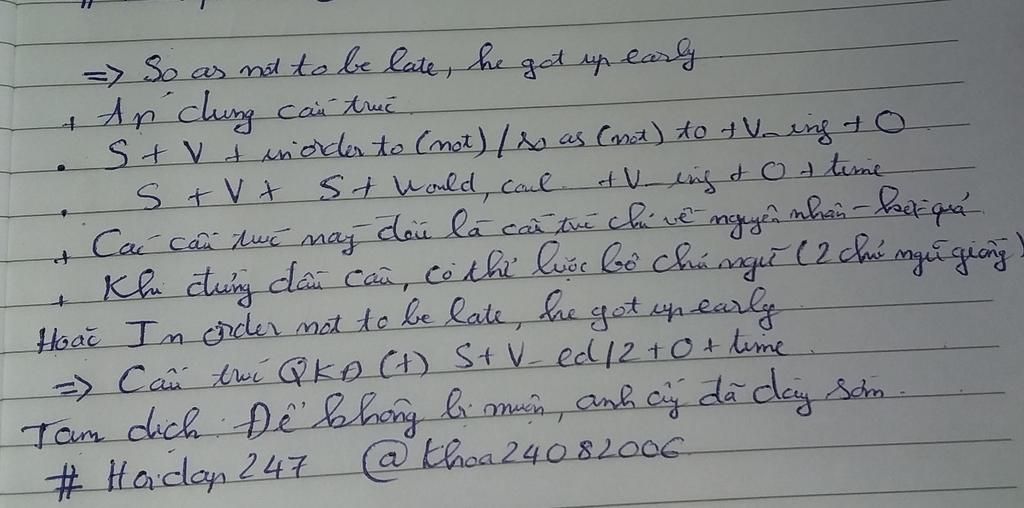 => So as not to be late, he got up early
+ Áp dụng cấu trúc
. S + V + in order to (not) / so as (not) to + V_ing + O
. S + V + S + Would, coul + V_ing + O + time
+ Các cấu trúc này đều là cấu trúc chỉ về nguyên nhân - kết quả
+ Khi đứng đầu câu, có thể lược bỏ chủ ngữ (2 chủ ngữ giống)
Hoặc In order not to be late, he got up early
=> Cấu trúc QKĐ (+) S + V_ed/2 + O + time
Tạm dịch: Để không bị muộn, anh ấy đã dậy sớm.
# Hoidap247 @Khoa24082006